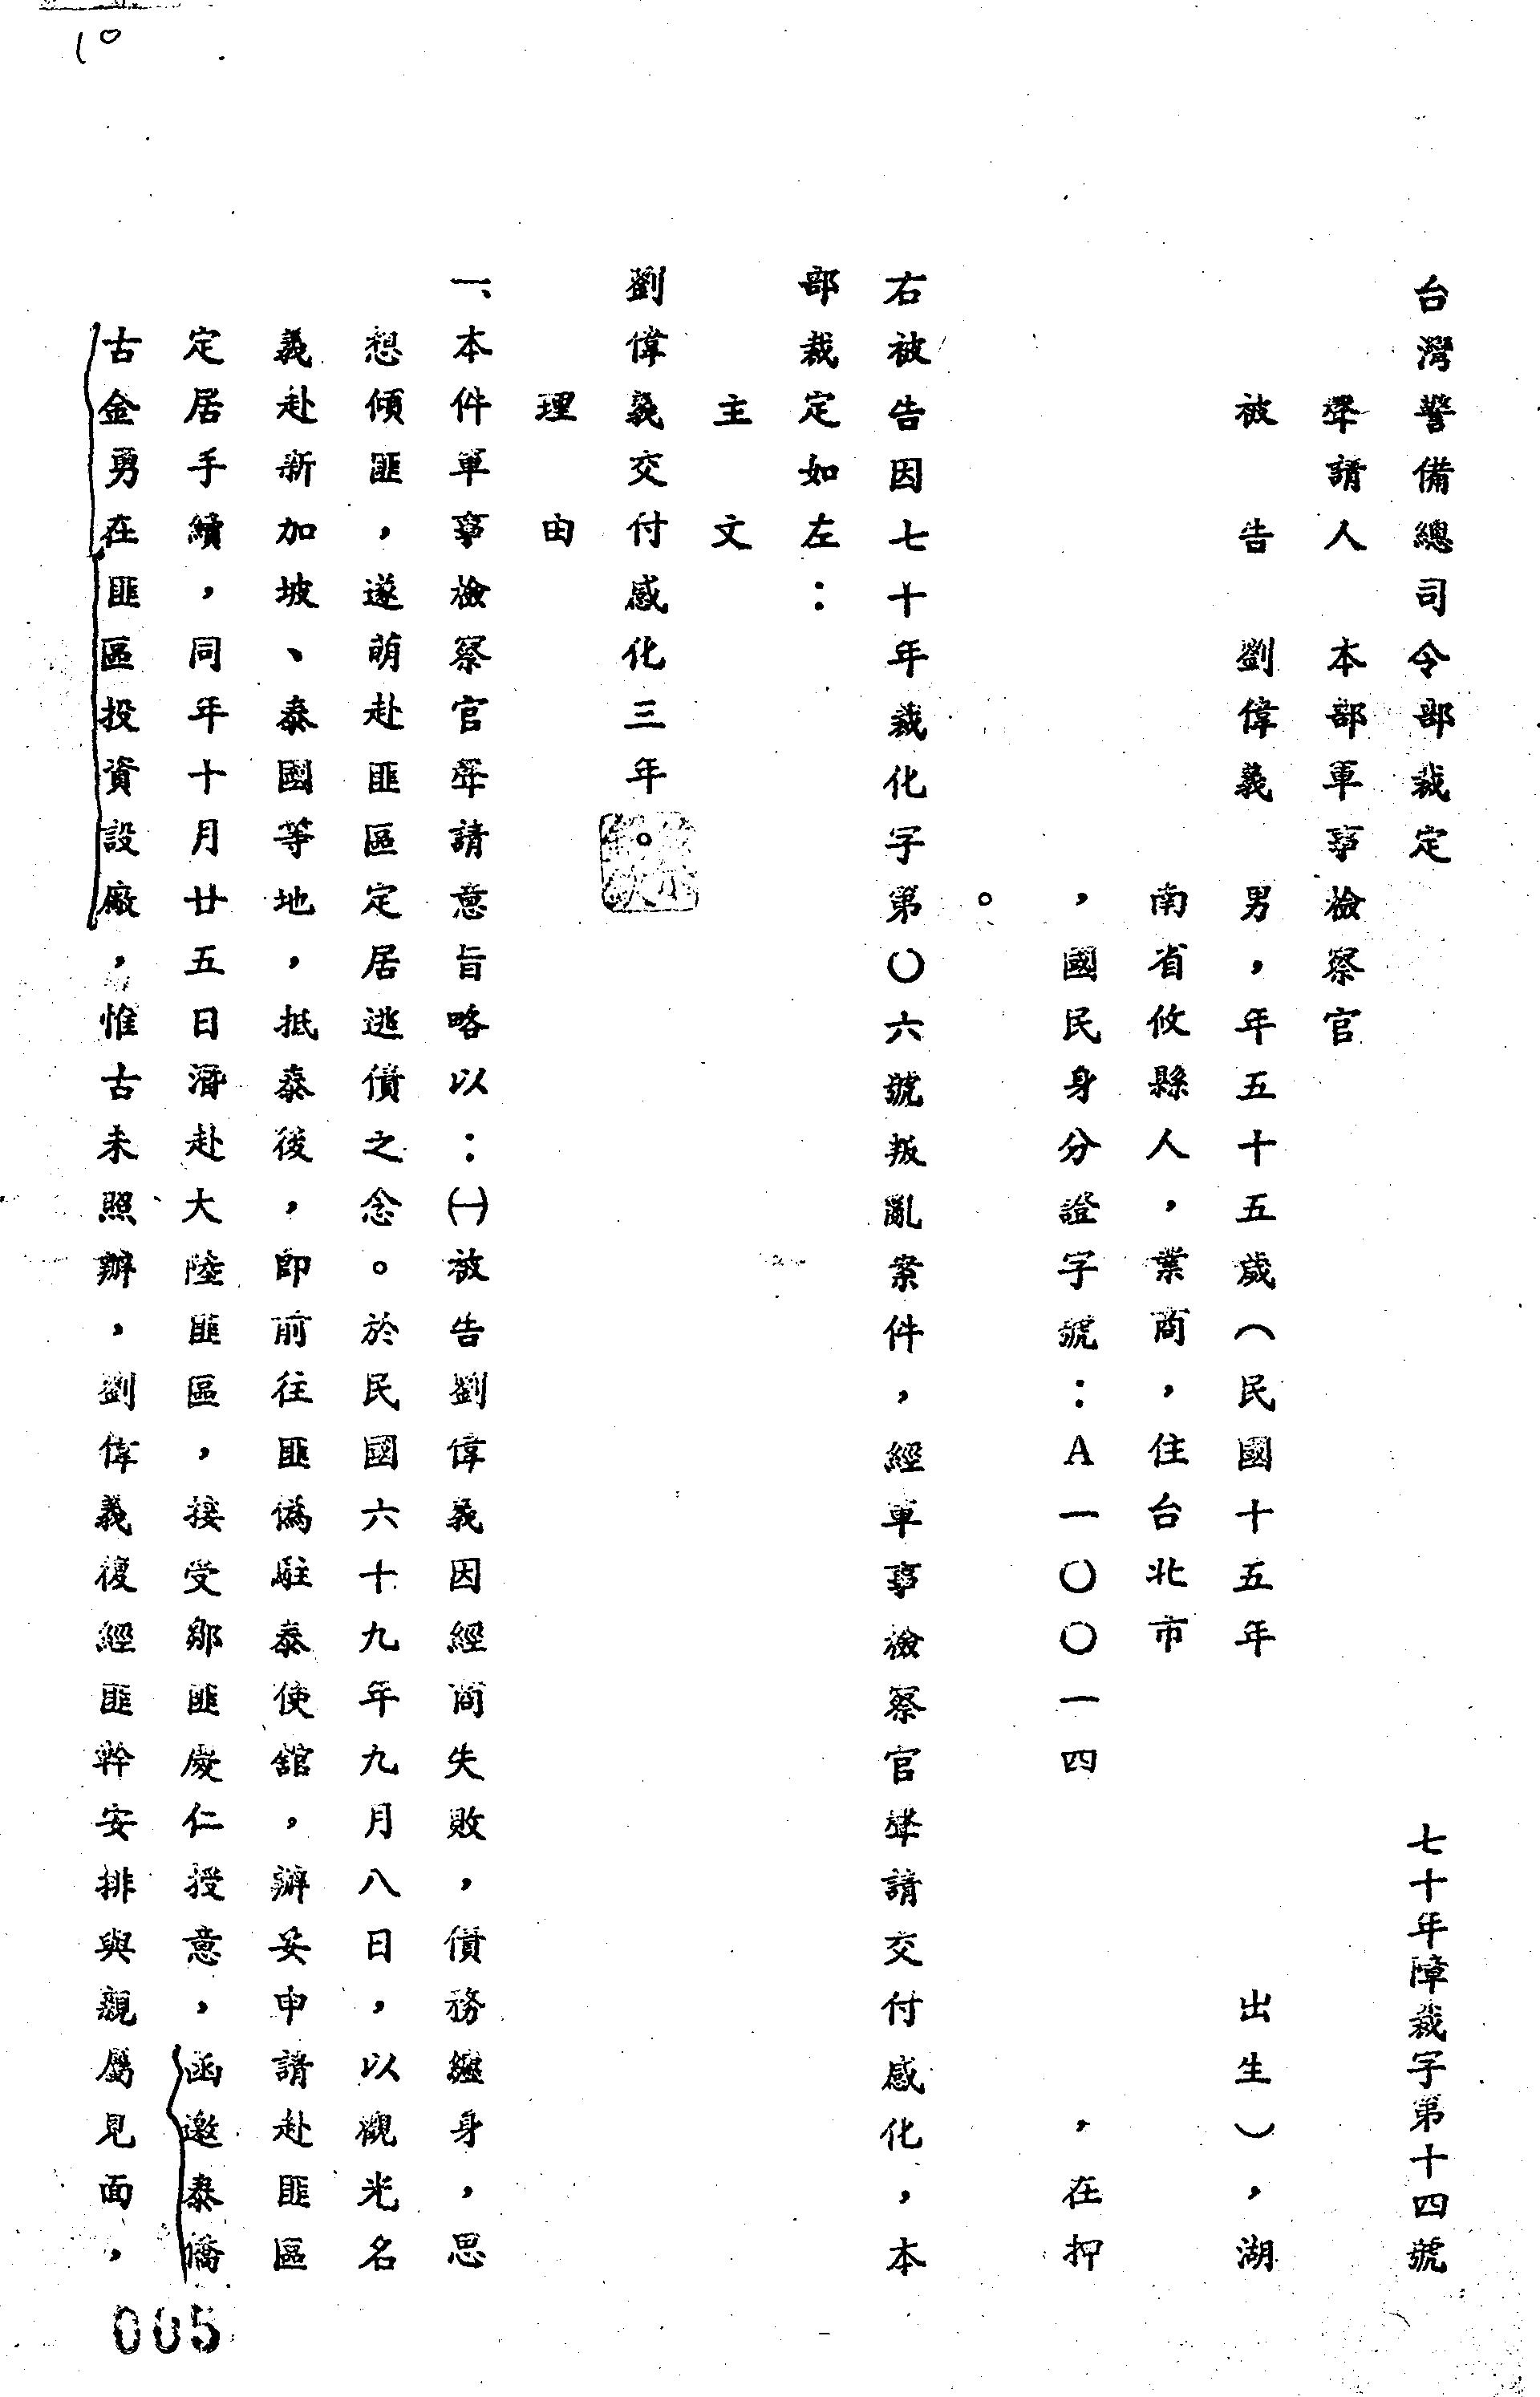 10
台灣警備總司令部裁定　七十年障裁字第十四號
聲請人　本部軍事檢察官
被告　劉偉義　男，年五十五歲（民國十五年　出生），湖
南省攸縣人，業商，住台北市
，國民身分證字號：A一〇〇一四　，在押
。
右被告因七十年裁化字第〇六號叛亂案件，經軍事檢察官聲請交付感化，本
部裁定如左：
主文
劉偉義交付感化三年。
理由
一、本件軍事檢察官聲請意旨略以：㈠被告劉偉義因經商失敗，債務纏身，思
想傾匪，遂萌赴匪區定居逃債之念。於民國六十九年九月八日，以觀光名
義赴新加坡、泰國等地，抵泰後，即前往匪偽駐泰使館，辦妥申請赴匪區
定居手續，同年十月廿五日潛赴大陸匪區，接受鄒匪慶仁授意，函邀泰僑
古金勇在匪區投資設廠，惟古未照辦，劉偉義復經匪幹安排與親屬見面，
005